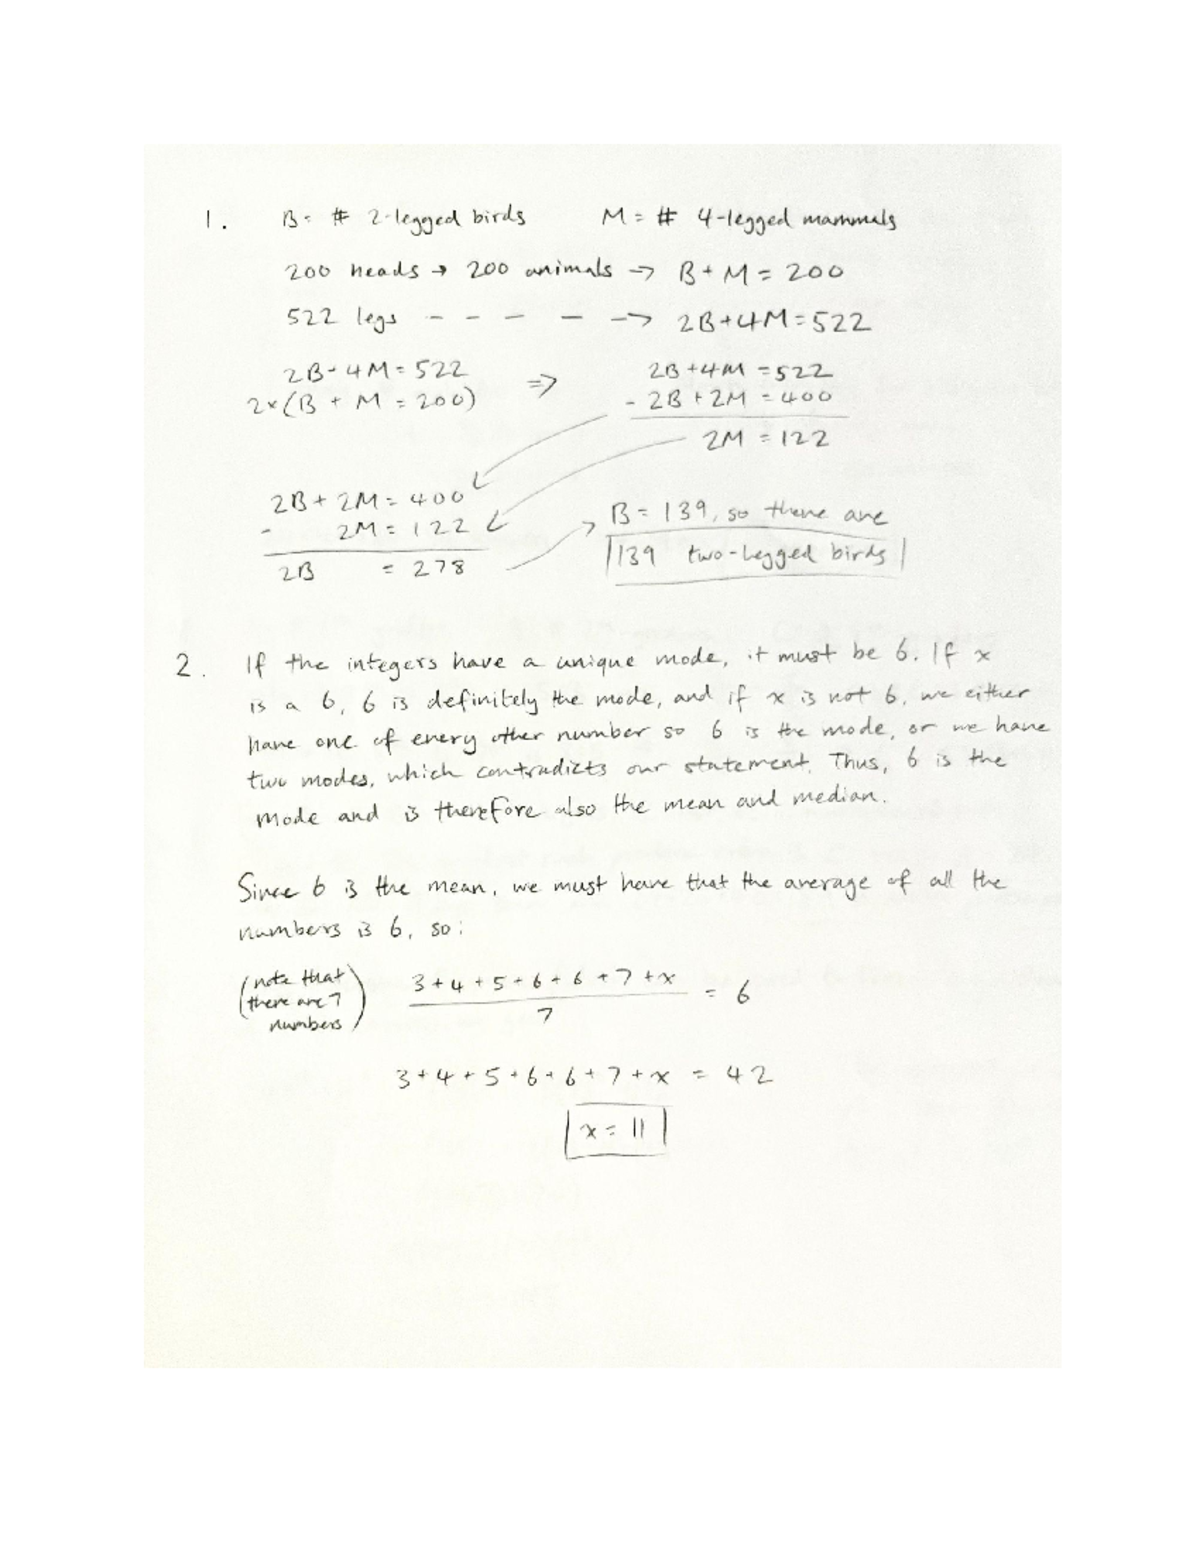 1. B = # 2-legged birds M = # 4-legged mammals
200 heads → 200 animals → B + M = 200
522 legs - - - - -> 2B+4M=522
2B-4M=522 => 2B+4M=522
2x(B + M = 200) - 2B+2M=400
2M=122
2B+2M=400
- 2M=122
2B = 278
B=139, so there are
139 two-legged birds
2. If the integers have a unique mode, it must be 6. If x
is a 6, 6 is definitely the mode, and if x is not 6, we either
have one of every other number so 6 is the mode, or we have
two modes, which contradicts our statement. Thus, 6 is the
mode and is therefore also the mean and median.
Since 6 is the mean, we must have that the average of all the
numbers is 6, so:
(note that there are 7 numbers)
3+4+5+6+6+7+x
7
= 6
3+4+5+6+6+7+x = 42
x = 11